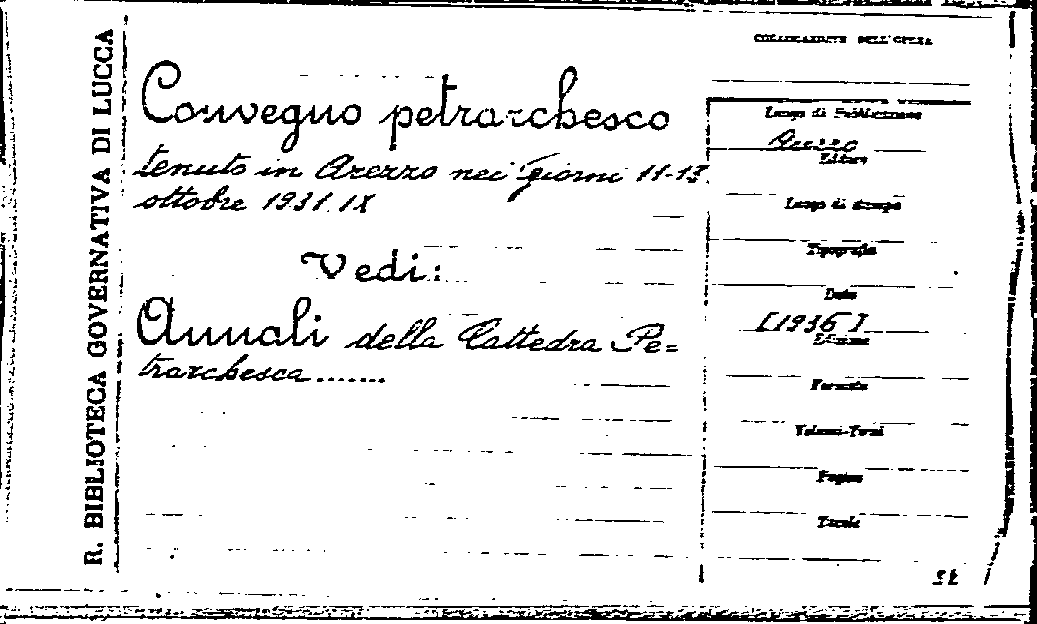 R. BIBLIOTECA GOVERNATIVA DI LUCCA
COLLOCAZIONE DELL'OPERA
Convegno petrarchesco
tenuto in Arezzo nei giorni 11-13
ottobre 1931. IX
Vedi:
Annali della Cattedra Pe=
trarchesca.......
Luogo di Pubblicazione
Arezzo
Editore
Luogo di stampa
Tipografia
Data
[1936]
Edizione
Formato
Volumi-Tomi
Pagine
Tavole